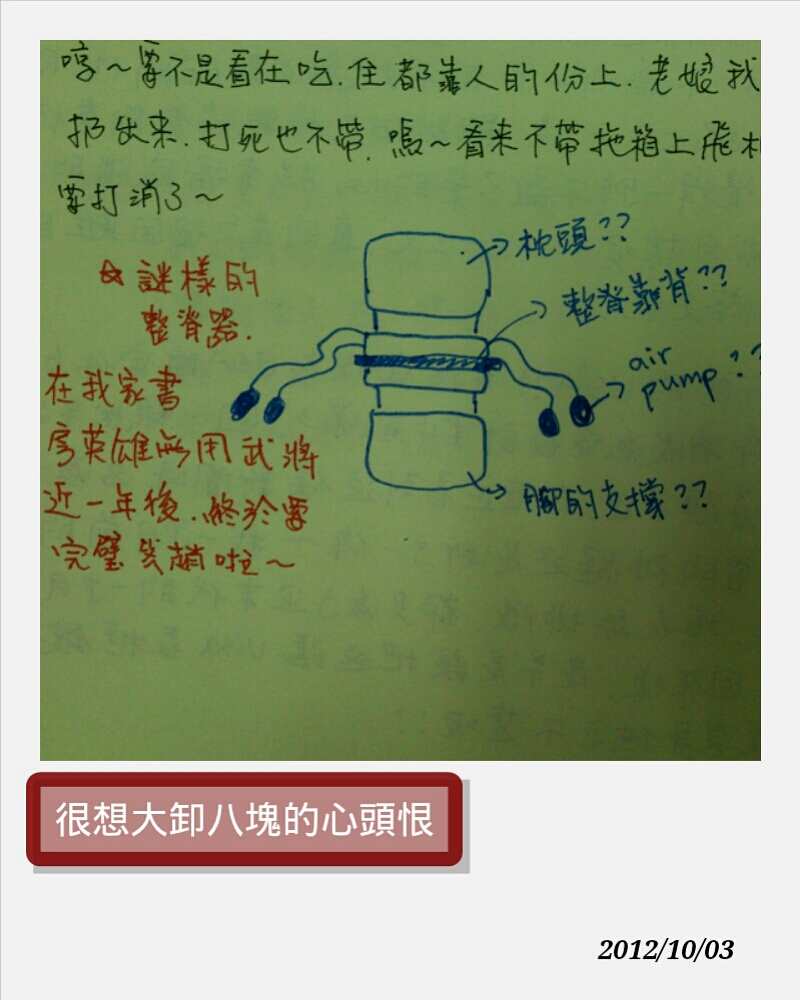 哼~要不是看在吃.住都靠人的份上.老娘我
扔出來.打死也不帶.嗚~看來不帶拖箱上飛机
要打消了~
謎樣的
整脊器.
在我家書
房英雄無用武將
近一年後.終於要
完璧歸趙啦~
枕頭??
整脊靠背??
air
pump??
腳的支撐??
很想大卸八塊的心頭恨
2012/10/03